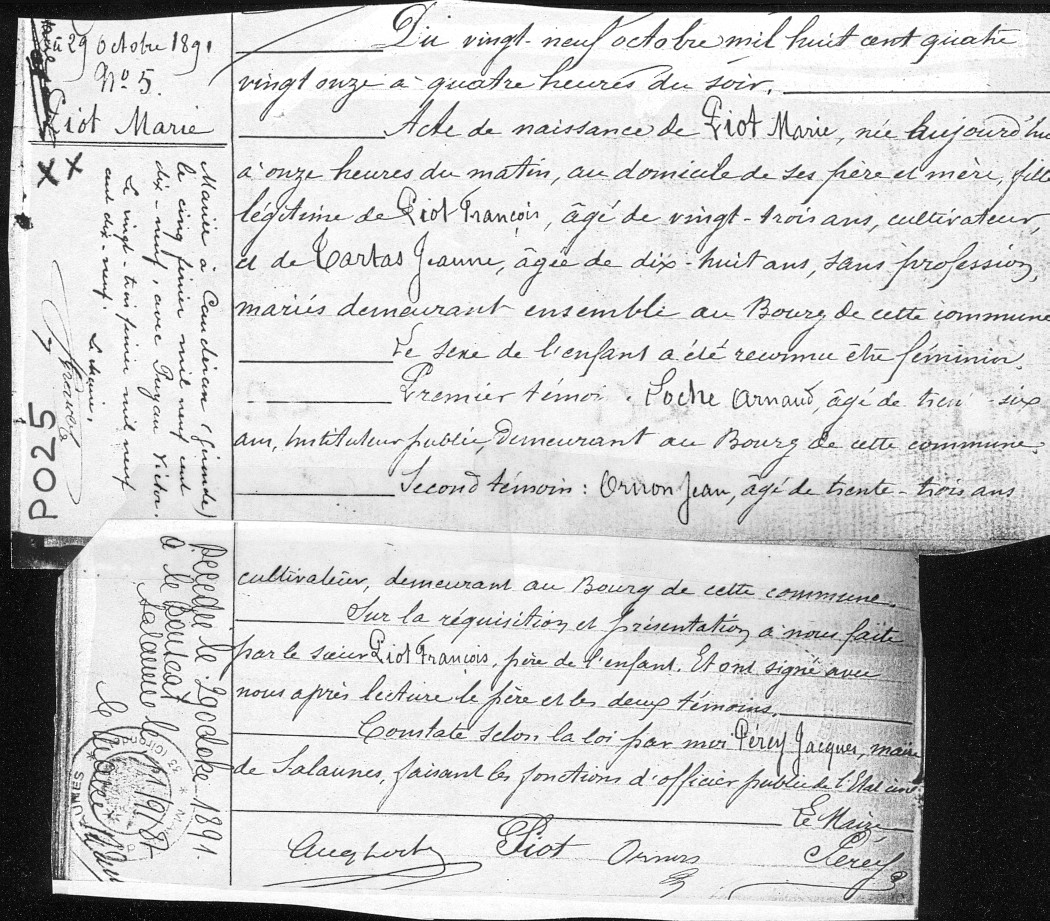 29 octobre 1891
N° 5.
Piot Marie
Mariée à Caudéran (Gironde)
le cinq février mil neuf cent
dix-neuf, avec Victor.
Le vingt-trois février mil neuf
cent dix-neuf. Le Maire,
P025
Du vingt-neuf octobre mil huit cent quatre
vingt onze à quatre heures du soir.
Acte de naissance de Piot Marie, née aujourd'hui
à onze heures du matin, au domicile de ses père et mère, fille
légitime de Piot François, âgé de vingt-trois ans, cultivateur,
et de Tartas Jeanne, âgée de dix-huit ans, sans profession,
mariés demeurant ensemble au Bourg de cette commune
Le sexe de l'enfant a été reconnu être féminin.
Premier témoin. Loche Arnaud, âgé de -six
ans, Instituteur public, demeurant au Bourg de cette commune.
Second témoin: Jean, âgé de trente-trois ans
cultivateur, demeurant au Bourg de cette commune.
Sur la réquisition et présentation à nous faite
par le sieur Piot François, père de l'enfant. Et ont signé avec
nous après lecture le père et les deux témoins.
Constaté selon la loi par moi Pérey Jacques, maire
de Salaunes, faisant les fonctions d'officier public de l'Etat civil
Le Maire
Piot
Pérey
Décédée le
à le Bouscat
Salaunes le
le Maire